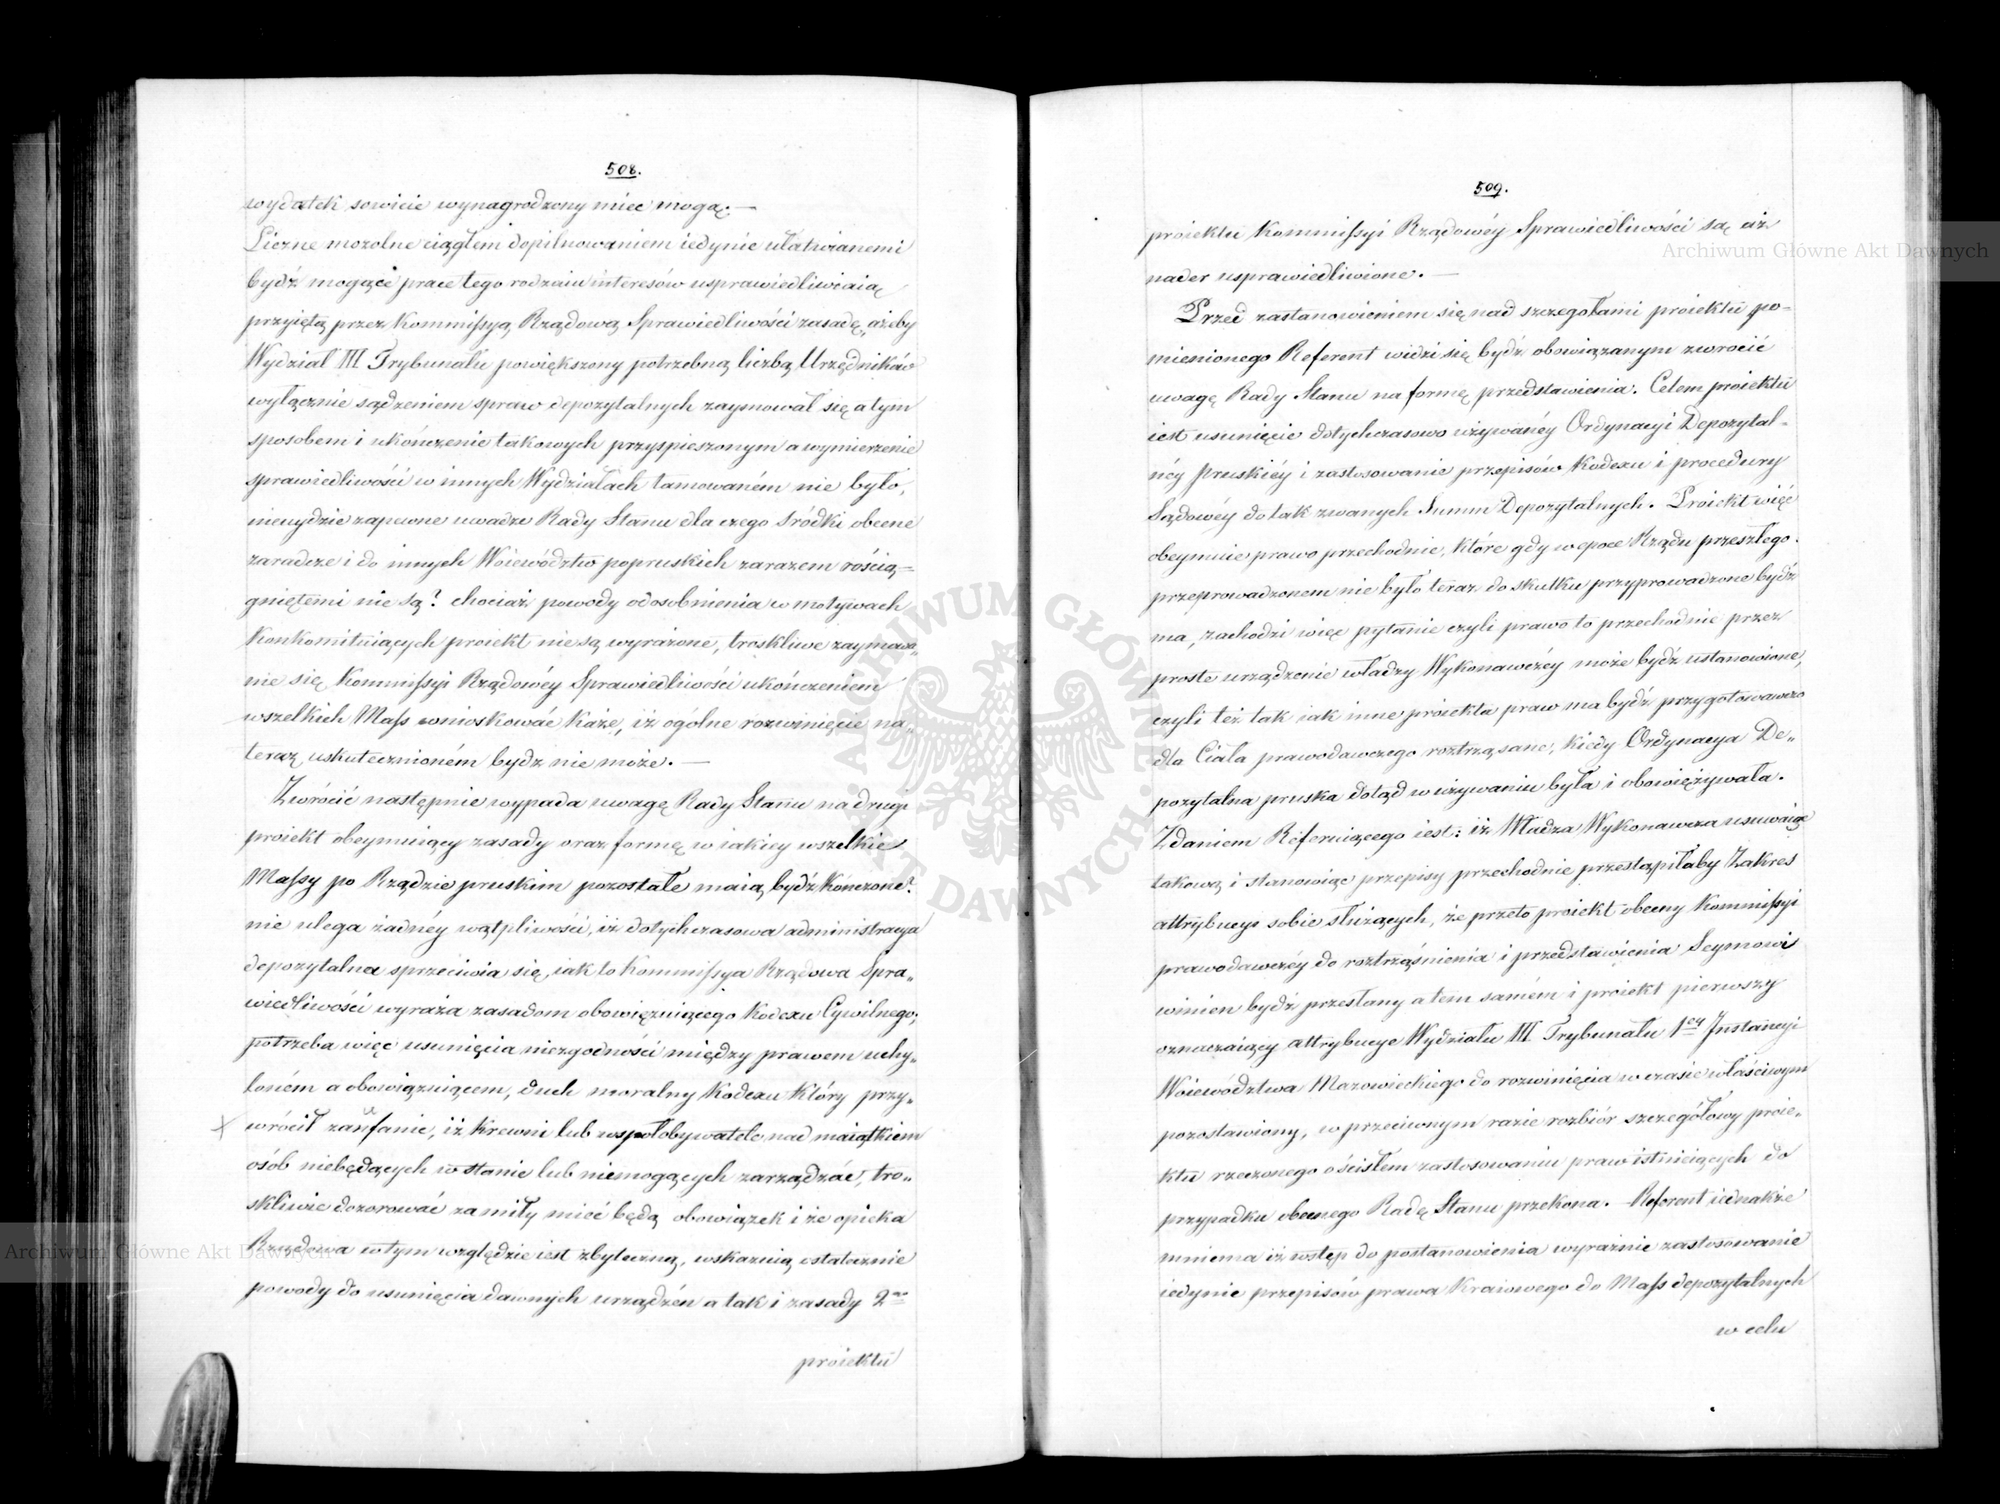 508.
wydatek sowicie wynagrodzony miec mogą. —
Liczne mozolne ciągłem dopilnowaniem iedynie ułatwianemi
bydź mogące prace tego rodzaiu interesów usprawiedliwiaią
przyiętą przez Kommissyą Rządową Sprawiedliwości zasadę, ażeby
Wydział III Trybunału powiększony potrzebną liczbą Urzędników
wyłącznie sądzeniem spraw depozytalnych zaymował się a tym
sposobem i ukończenie takowych przyspieszonym a wymierzenie
sprawiedliwości w innych Wydziałach tamowaném nie było,
nieuydzie zapewne uwadze Rady Stanu dla czego środki obecne
zaradcze i do innych Woiewództw popruskich zarazem rością=
gniętemi nie są? chociaż powody odosobnienia w motywach
Konkomituiących proiekt nie są wyrażone, troskliwe zaymowa„
nie się Kommissyi Rządowéy Sprawiedliwości ukończeniem
wszelkich Mass wnioskować każe, iż ogólne rozwinięcie na„
teraz uskutecznioném bydz nie może. —
Zwrócić następnie wypada uwagę Rady Stanu na drugi
proiekt obeymuiący zasady oraz formę w iakiey wszelkie
Massy po Rządzie pruskim pozostałe maią bydź kończone?
nie ulega żadnéy wątpliwości, iż dotychczasowa administracya
depozytalna sprzeciwia się, iak to Kommissya Rządowa Spra„
wiedliwości wyraża zasadom obowięzuiącego Kodexu Cywilnego;
potrzeba więc usunięcia niezgodności między prawem uchy„
loném a obowiązuiącem, duch moralny Kodexu który przy„
wrócił zaufanie, iż krewni lub współobywatele nad maiątkiem
osób niebędących w stanie lub niemogących zarządzać, tro„
skliwie dozorować za miły mieć będą obowiązek i że opieka
Rządowa w tym względzie iest zbyteczną, wskazuią ostatecznie
powody do usunięcia dawnych urządzéń a tak i zasady 2go
proiektu
509.
proiektu Kommissyi Rządowéy Sprawiedliwości są aż
nader usprawiedliwione. —
Przed zastanowieniem się nad szczegołami proiektu po=
mienionego Referent widzi się bydź obowiązanym zwrocić
uwagę Rady Stanu na formę przedstawienia. Celem proiektu
iest usunięcie dotychczasowo używanéy Ordynacyi Depozytal=
néy Pruskiéy i zastosowanie przepisów Kodexu i procedury
Sądowéy do tak zwanych Summ Depozytalnych. Proiekt więc
obeymuie prawo przechodnie, które gdy w epoce Rządu przeszłego
przeprowadzonem nie było teraz do skutku przyprowadzone bydź
ma, zachodzi więc pytanie czyli prawo to przechodnie przez
proste urządzenie władzy Wykonawczéy może bydź ustanowione,
czyli też tak iak inne proiekta praw ma bydź przygotowawczo
dla Ciała prawodawczego roztrząsane, kiedy Ordynacya De„
pozytalna pruska dotąd w używaniu była i obowięzywała.
Zdaniem Referuiącego iest: iż Władza Wykonawcza usuwaiąc
takową i stanowiąc przepisy przechodnie przestąpiłaby Zakres
attrybucyi sobie służących, że przeto proiekt obecny Kommissyi
prawodawczéy do roztrząśnienia i przedstawienia Seymowi
winien bydź przesłany a tém samém i proiekt pierwszy
oznaczaiący attrybucye Wydziału III Trybunału 1éy Jnstancyi
Woiewództwa Mazowieckiego do rozwinięcia w czasie właściwym
pozostawiony, w przeciwnym razie rozbiór szczegółowy proie„
ktu rzeczonego o ścisłem zastosowaniu praw istnieiących do
przypadku obecnego Radę Stanu przekona. — Referent iednakże
mniema iż wstęp do postanowienia wyraźnie zastosowanie
iedynie przepisów prawa Kraiowego do Mass depozytalnych
w celu
Archiwum Główne Akt Dawnych
Archiwum Główne Akt Dawnych
ARCHIWUM GŁÓWNE AKT DAWNYCH